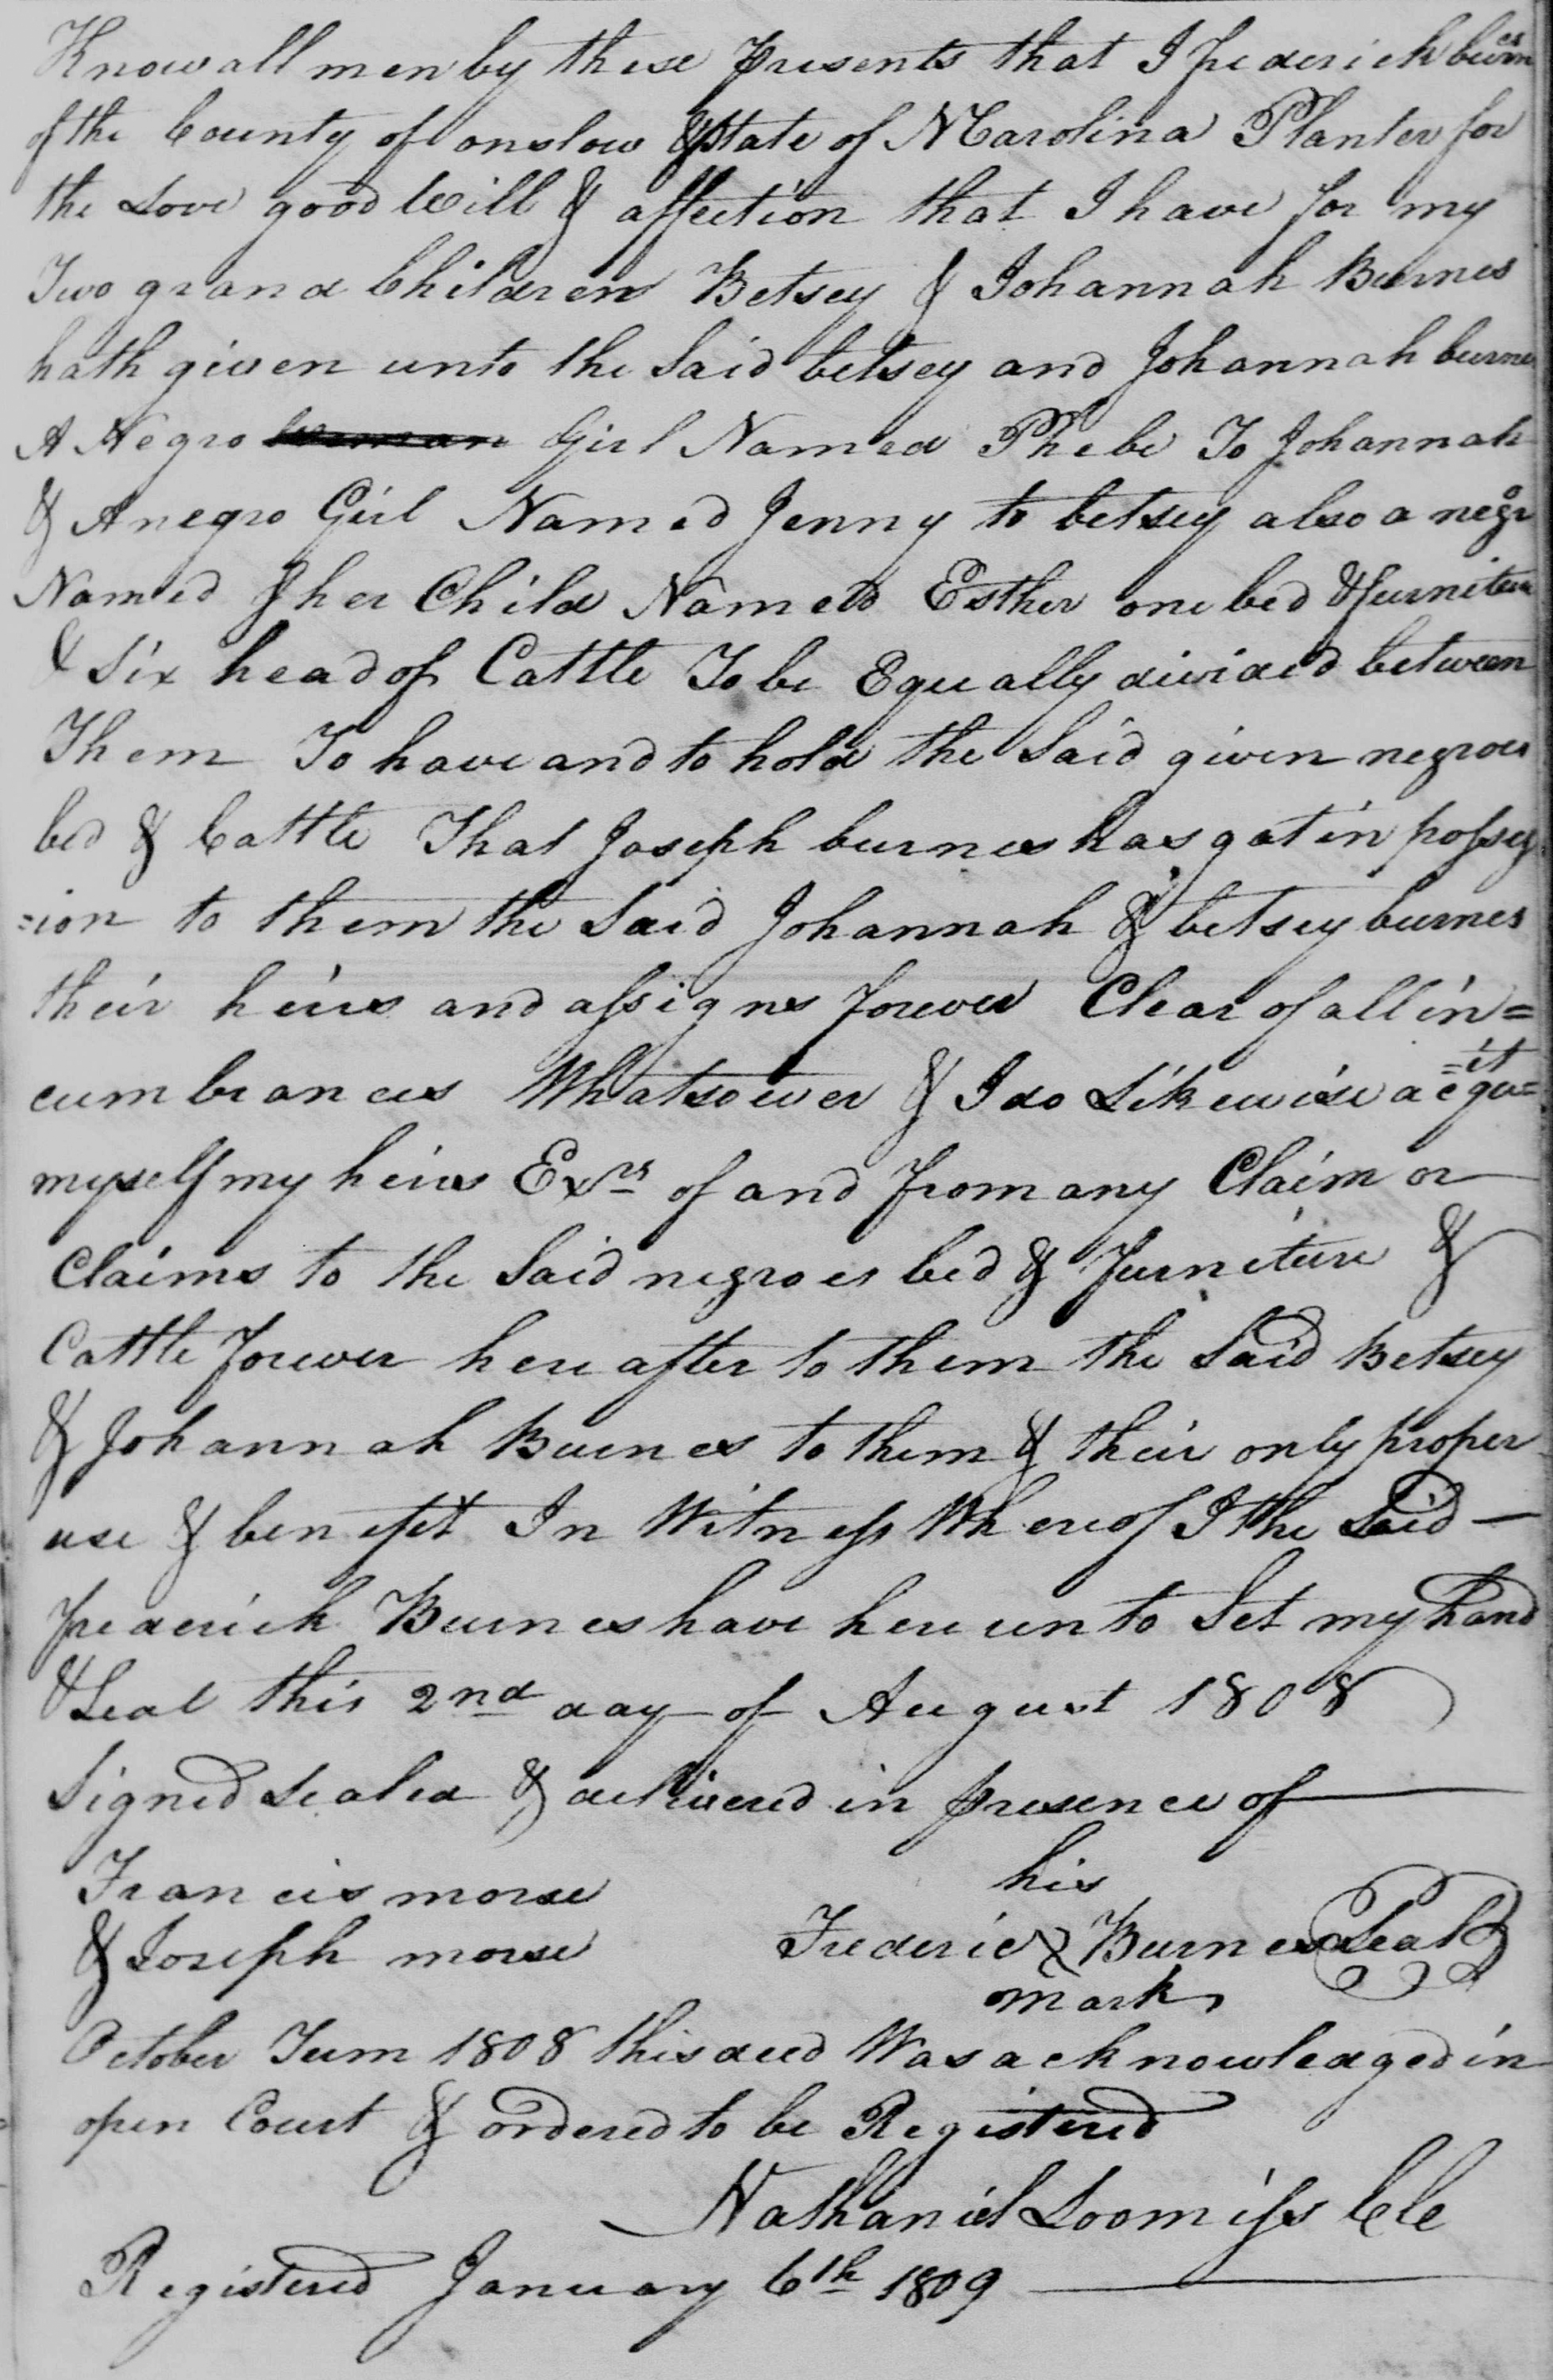 Know all men by these Presents that I Frederick burnes
of the County of onslow & State of N Carolina Planter for
the Love good will & affection that I have for my
Two grand Children Betsey & Johannah Burnes
hath given unto the Said betsey and Johannah burnes
A Negro woman Girl Named Phebe To Johannah
& A negro Girl Named Jenny to betsey also a negro
Named & her Child Named Esther one bed & furniture
& Six head of Cattle To be Equally divided between
Them To have and to hold the Said given negroes
bed & Cattle That Joseph burnes has got in posses
=ion to them the Said Johannah & betsey burnes
their heirs and assigns forever Clear of all in=
cumbrances Whatsoever & I do Likewise acqu=
=it
myself my heirs Exrs of and from any Claim or
Claims to the Said negroes bed & Furniture &
Cattle forever here after to them the Said Betsey
& Johannah Burnes to them & their only proper
use & benefit In Witness Whereof I the Said
frederick Burnes have here unto Set my hand
& Seal this 2nd day of August 1808
Signed Sealed & delivered in presence of
Francis morse his
& Joseph morse Frederic Burnes Seal
mark
October Term 1808 this deed Was acknowledged in
open Court & ordered to be Registered
Nathaniel Loomiss Cle
Registered January 6th 1809